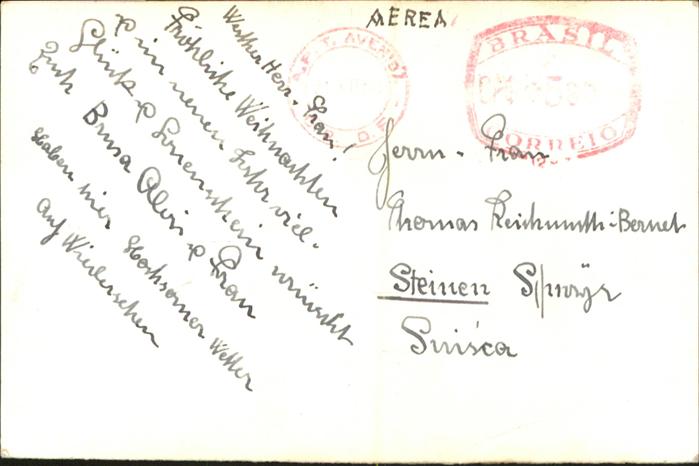 AEREA
BRASIL
CORREIO
Werther Herr & Frau!
Fröhliche Weihnachten
& im neuen Jahr viel
Glück & Sonnenschein wünscht
Euch Bruna Alois & Frau
Haben hier Hochsommer Wetter
Auf Wiedersehen
Herrn & Frau
Thomas Reichmuth-Bernet
Steinen Schwyz
Suisca